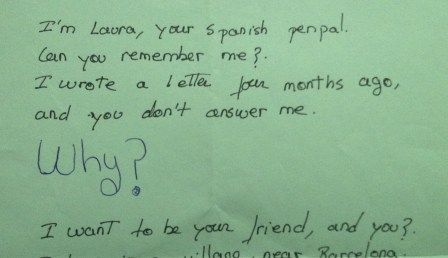 I'm Laura, your spanish penpal.
Can you remember me?.
I wrote a letter four months ago,
and you don't answer me.
Why?
I want to be your friend, and you?.
near Barcelona.